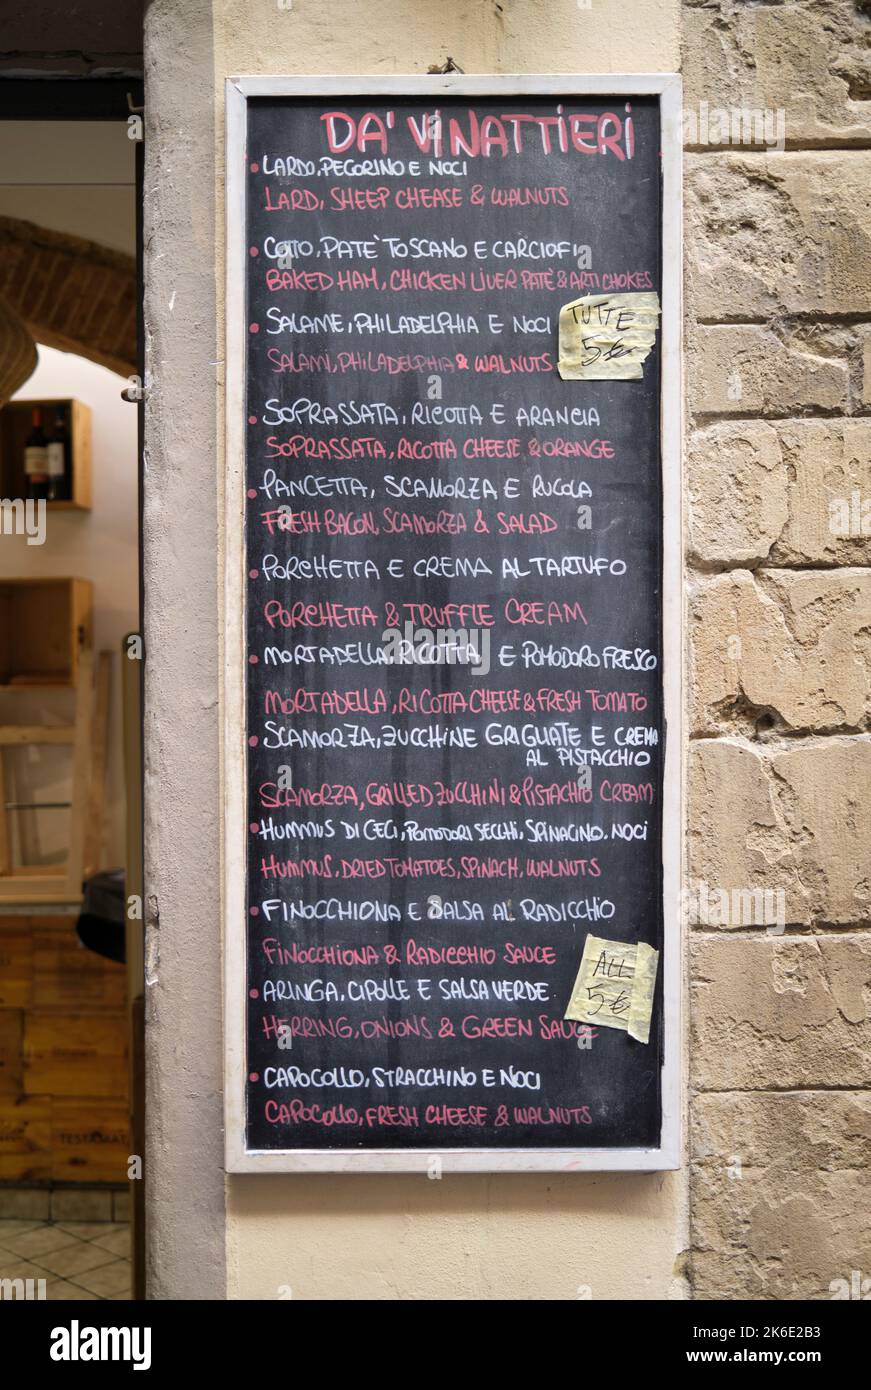 DA' VINATTIERI
LARDO, PECORINO E NOCI
LARD, SHEEP CHEASE & WALNUTS
COTTO, PATE' TOSCANO E CARCIOFI
BAKED HAM, CHICKEN LIVER PATÈ & ARTICHOKES
SALAME, PHILADELPHIA E NOCI
TUTTE
5€
SALAMI, PHILADELPHIA & WALNUTS
SOPRASSATA, RICOTTA E ARANCIA
SOPRASSATA, RICOTTA CHEESE & ORANGE
PANCETTA, SCAMORZA E RUCOLA
FRESH BACON, SCAMORZA & SALAD
PORCHETTA E CREMA AL TARTUFO
PORCHETTA & TRUFFLE CREAM
MORTADELLA, RICOTTA E POMODORO FRESCO
MORTADELLA, RICOTTA CHEESE & FRESH TOMATO
SCAMORZA, ZUCCHINE GRIGLIATE E CREMA
AL PISTACCHIO
SCAMORZA, GRILLED ZUCCHINI & PISTACHIO CREAM
HUMMUS DI CECI, POMODORI SECCHI, SPINACINO, NOCI
HUMMUS, DRIED TOMATOES, SPINACH, WALNUTS
FINOCCHIONA E SALSA AL RADICCHIO
FINOCCHIONA & RADICCHIO SAUCE
ALL
5€
ARINGA, CIPOLLE E SALSA VERDE
HERRING, ONIONS & GREEN SAUCE
CAPOCOLLO, STRACCHINO E NOCI
CAPOCOLLO, FRESH CHEESE & WALNUTS
alamy
Image ID: 2K6E2B3
www.alamy.com